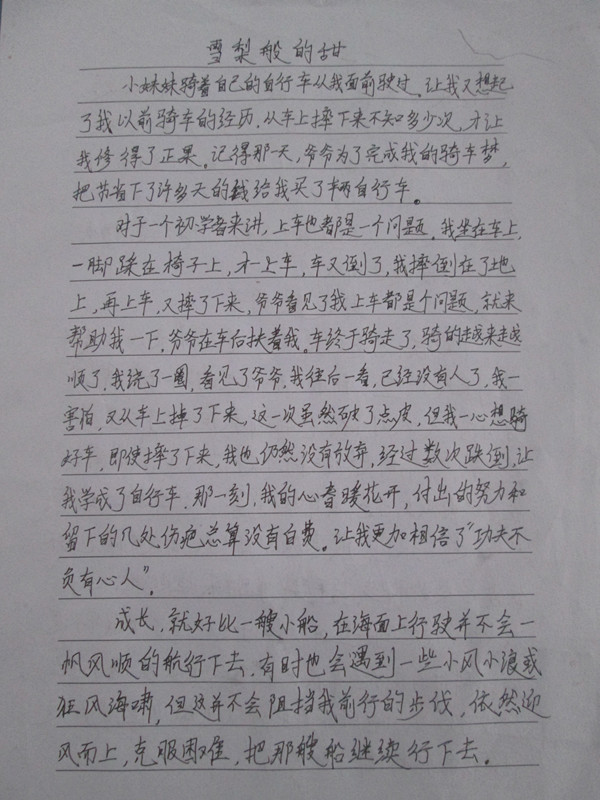 雪梨般的甜
小妹妹骑着自己的自行车从我面前驶过.让我又想起
了我以前骑车的经历.从车上摔下来不知多少次,才让
我修得了正果.记得那一天,爷爷为了完成我的骑车梦,
把节省下了许多天的钱给我买了辆自行车。
对于一个初学者来讲,上车也都是一个问题.我坐在车上,
一脚踩在椅子上,才一上车,车又倒了,我摔倒在了地
上,再上车,又摔了下来,爷爷看见了我上车都是个问题,就来
帮助我一下.爷爷在车后扶着我.车终于骑走了,骑的越来越
顺了.我绕了一圈,看见了爷爷.我往后一看,已经没有人了,我一
害怕,又从车上掉了下来,这一次虽然破了点皮,但我一心想骑
好车,即使摔了下来,我也仍然没有放弃,经过数次跌倒,让
我学成了自行车.那一刻,我的心春暖花开,付出的努力和
留下的几处伤疤总算没有白费。让我更加相信了“功夫不
负有心人”.
成长,就好比一艘小船,在海面上行驶并不会一
帆风顺的航行下去.有时也会遇到一些小风小浪或
狂风海啸,但这并不会阻挡我前行的步伐,依然迎
风而上,克服困难,把那艘船继续行下去.